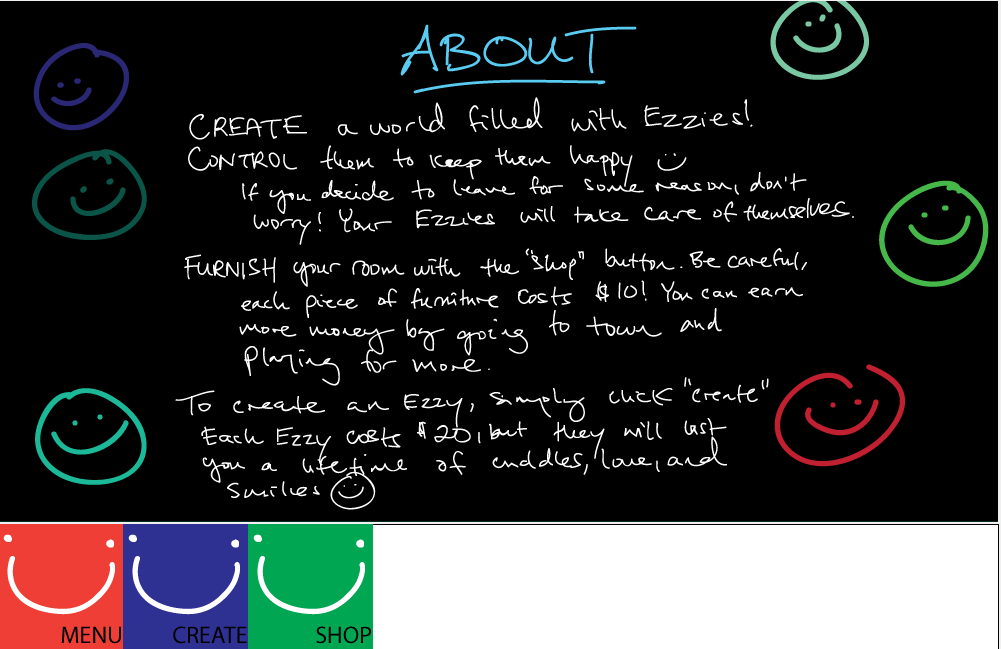 ABOUT
CREATE a world filled with Ezzies!
CONTROL them to keep them happy
If you decide to leave for some reason, don't
worry! Your Ezzies will take care of themselves.
FURNISH your room with the "shop" button. Be careful,
each piece of furniture costs $10! You can earn
more money by going to town and
playing for more.
To create an Ezzy, simply click "create"
Each Ezzy costs $20, but they will last
you a lifetime of cuddles, love, and
smilies
MENU CREATE SHOP